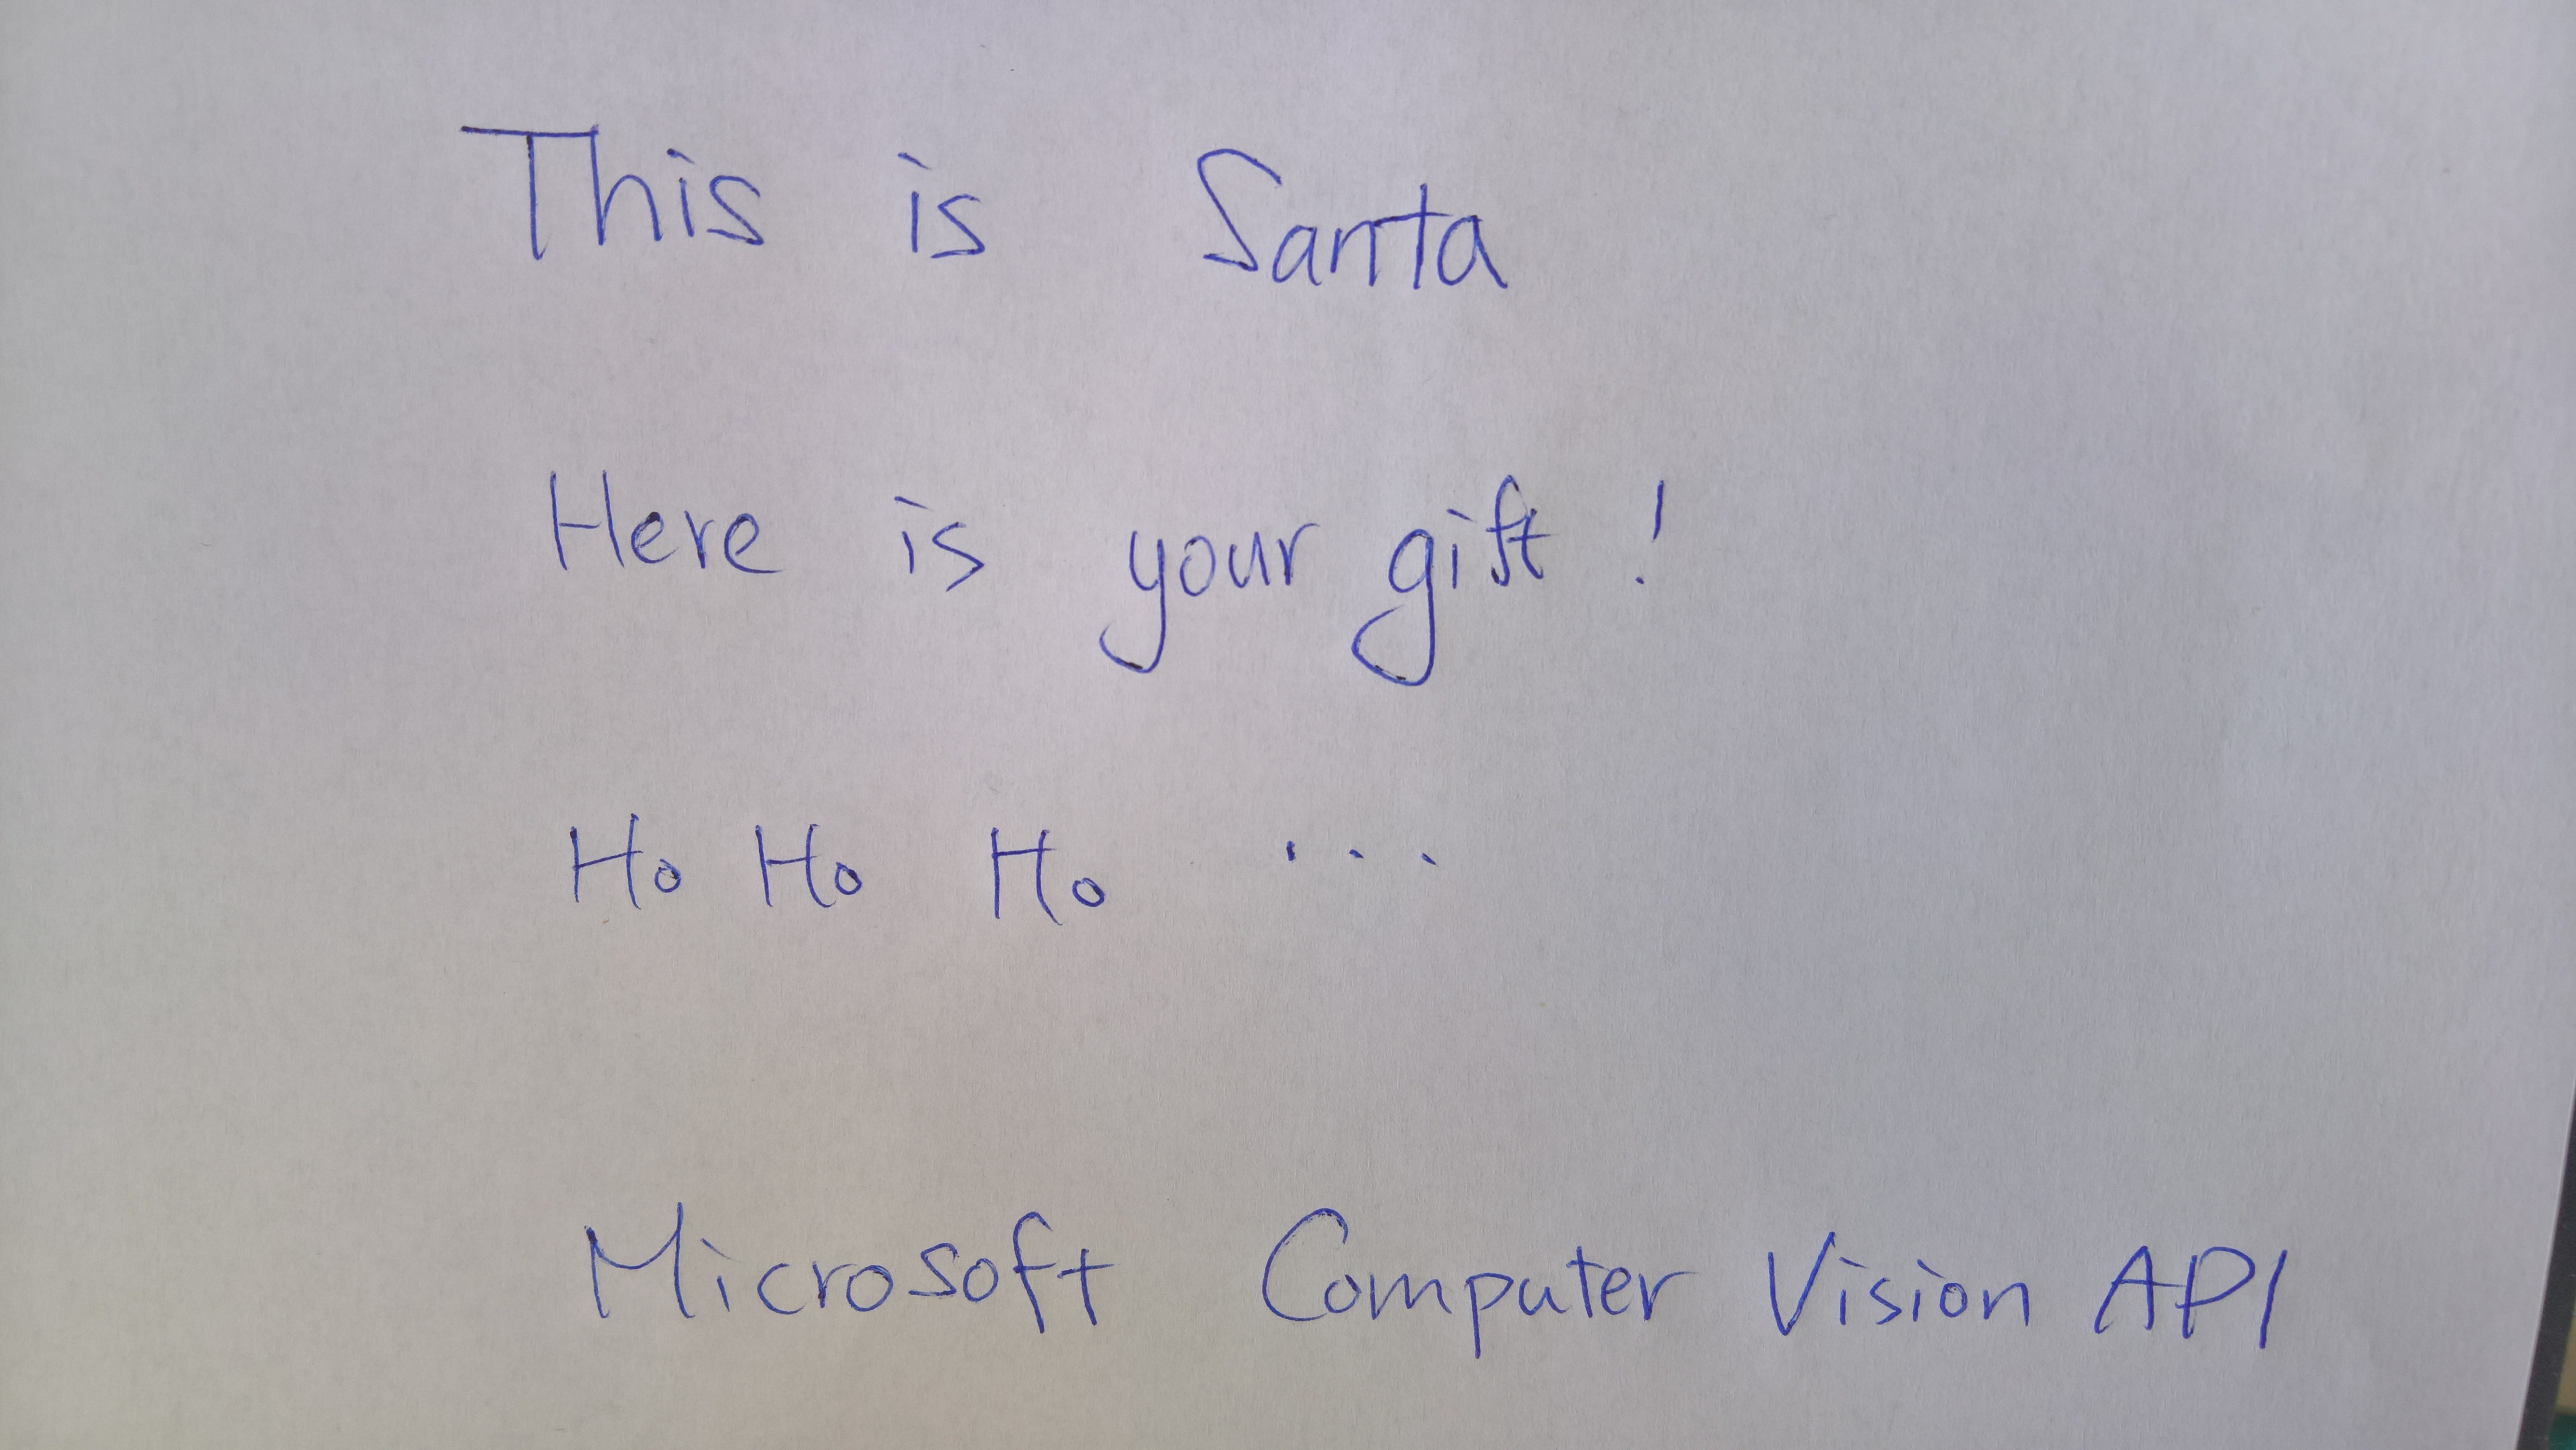 This is Santa
Here is your gift !
Ho Ho Ho ...
Microsoft Computer Vision API